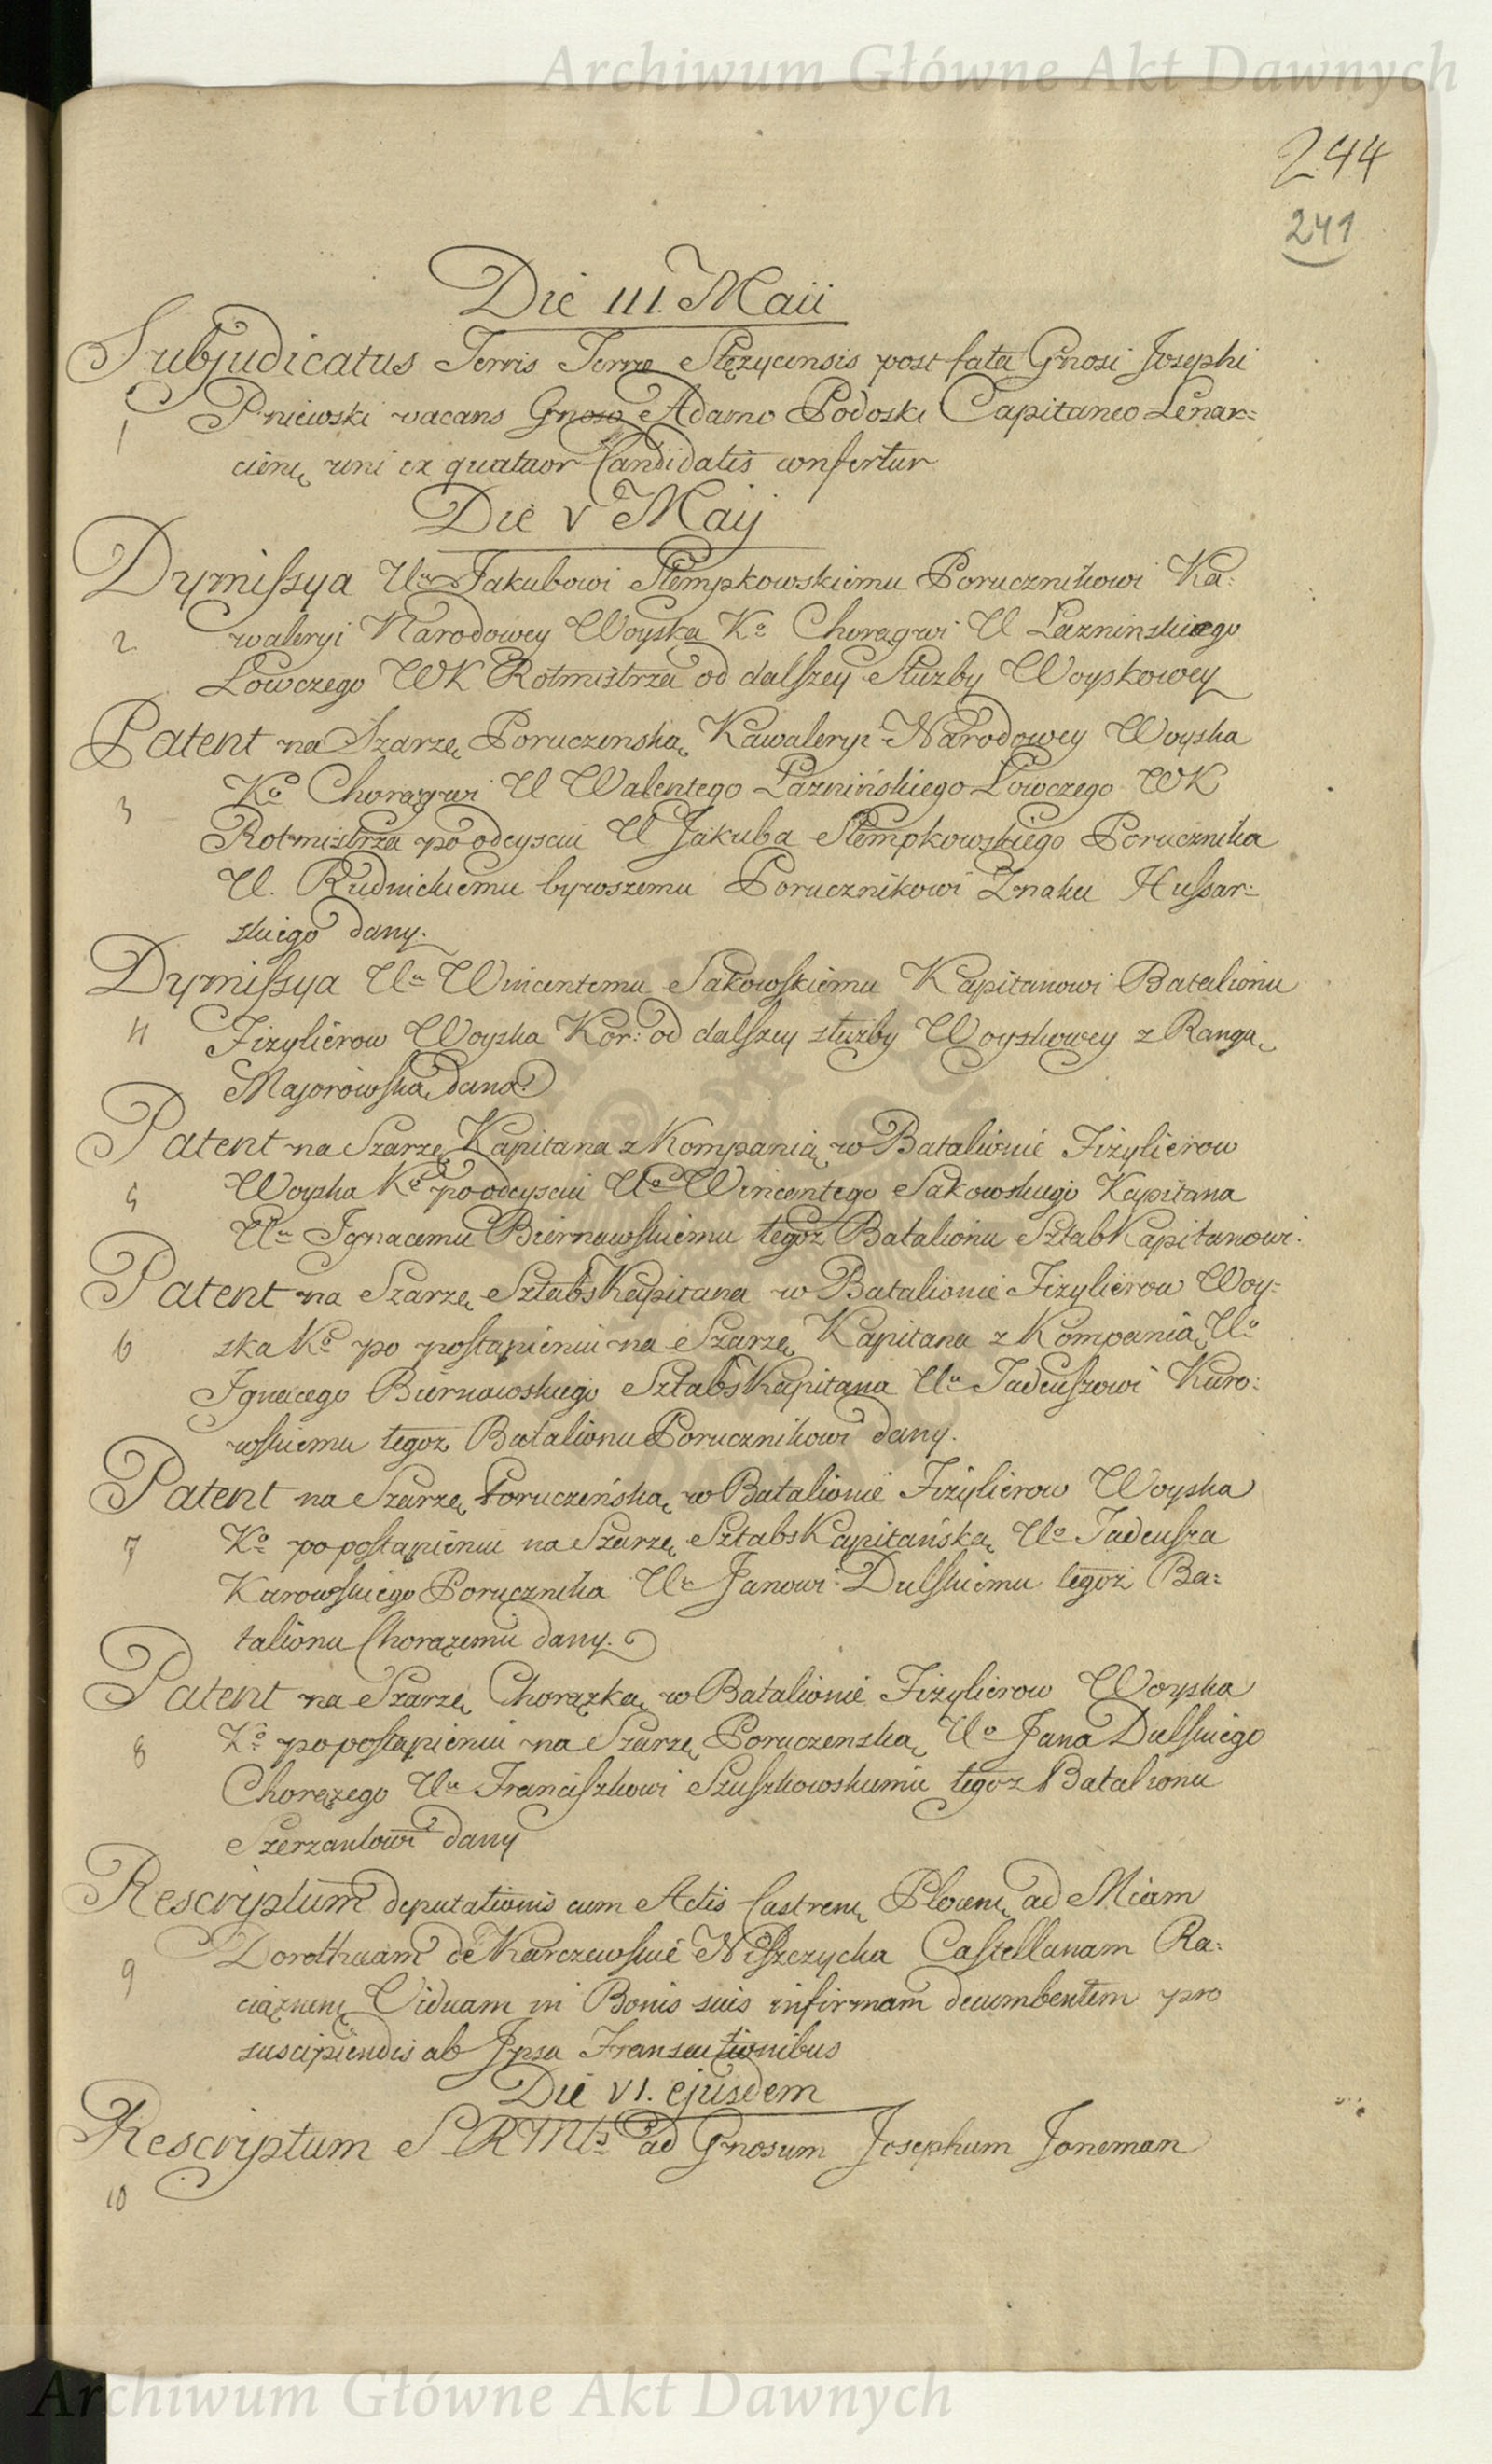 Archiwum Główne Akt Dawnych
244
241
Die III. Maii
Subjudicatus Terris Terrae Stężycensis post fata Gnosi Josephi
1 Pniewski vacans Gnoso Adamo Podoski Capitaneo Lenar=
cieną uni ex quatuor Candidatis confertur
Die V Maij
Dymissya Ur Jakubowi Stempkowskiemu Porucznikowi Ka:
2 waleryi Narodowey Woyska Ko Chorągwi U Lazninskiego
Łowczego WK Rotmistrza od dalszey Służby Woyskowey
Patent na Szarzę Poruczenską Kawaleryi Narodowey Woyska
3 Ko Chorągwi U Walentego Laznińskiego Łowczego WK
Rotmistrza po odeysciu U Jakuba Stempkowskiego Porucznika
U. Rudnickiemu bywszemu Porucznikowi Znaku Hussar=
skiego dany.
Dymissya Uu Wincentemu Sakowskiemu Kapitanowi Batalionu
4 Fizylierow Woyska Kor: od dalszey służby Woyskowey z Rangą
Majorowską dana
Patent na Szarzę Kapitana z Kompanią w Batalionie Fizylierow
5 Woyska Ko po odeysciu Uo Wincentego Sakowskiego Kapitana
Uu Ignacemu Biernawskiemu tegoż Batalionu SztabKapitanowi.
Patent na Szarzę SztabsKapitana w Batalionie Fizylierow Woy=
6 ska Ko po postąpieniu na Szarzę Kapitana z Kompanią Uo
Ignacego Biernawskiego SztabsKapitana Uu Tadeuszowi Kuro:
wskiemu tegoż Batalionu Porucznikowi dany.
Patent na Szarzę Poruczeńską w Batalionie Fizylierow Woyska
7 Ko po postąpieniu na Szarzę SztabsKapitańską Uo Tadeusza
Kurowskiego Porucznika Uu Janowi Dulskiemu tegoż Ba:
talionu Chorążemu dany.
Patent na Szarzę Chorążką w Batalionie Fizylierow Woyska
8 Ko po postąpieniu na Szarzę Poruczenską Uo Jana Dulskiego
Chorążego Uu Franciszkowi Szuszkowskiemu tegoż Batalionu
Szerzantowi dany
Rescriptum deputationis cum Actis Castrens Plocens ad Mcam
Dorotheam de Karczewskie Niszczycka Castellanam Ra:
9 ciąznens Viduam in Bonis suis infirmam decumbentem pro
suscipiendis ab Ipsa Transactionibus
Die VI. ejusdem
Rescriptum S R Mtis ad Gnosum Josephum Joneman
10
Archiwum Główne Akt Dawnych